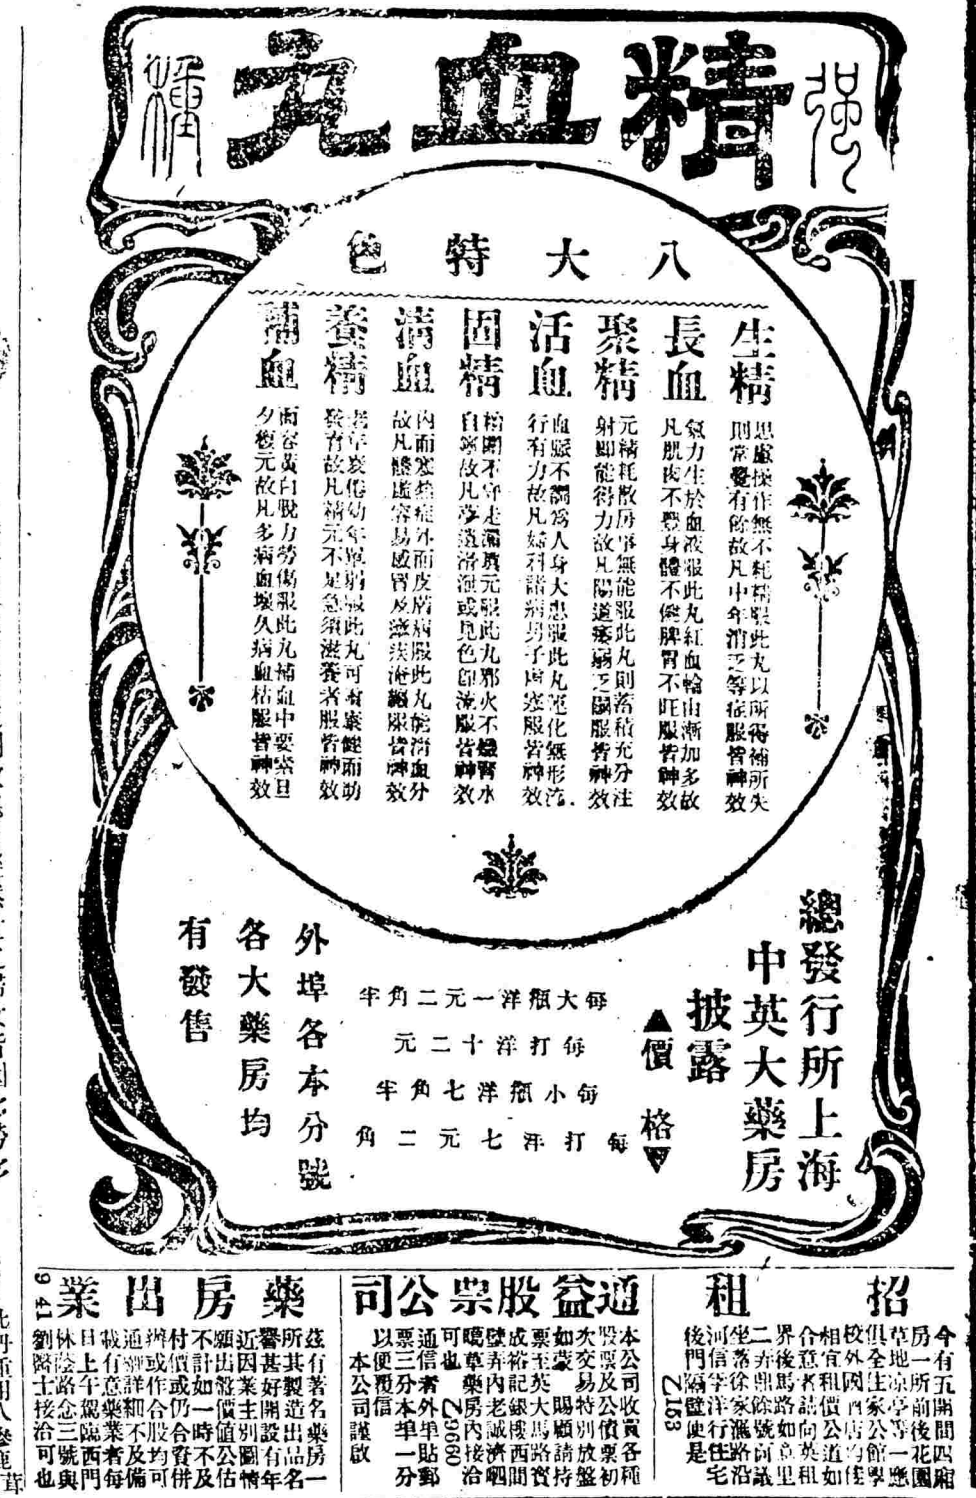 強種
精血丸
八大特色
生精
思慮操作無不耗精服此丸以所得補所失
則常覺有餘故凡中年消乏等症服皆神效
長血
氣力生於血液服此丸紅血輪由漸加多故
凡肌肉不豐身體不健脾胃不旺服皆神效
聚精
元精耗散房事無能服此丸則蓄積充分注
射卽能得力故凡陽道痿弱乏嗣服皆神效
活血
血脈不調爲人身大患服此丸運化無形流
行有力故凡婦科諸病男子虛寒服皆神效
固精
精關不守走漏眞元服此丸邪火不熾腎水
自寧故凡夢遺滑洩或見色卽流服皆神效
淸血
內而寒熱症外而皮膚病服此丸能淸血分
故凡體虛容易感冒及瘀痰淹纏服皆神效
養精
老年衰倦幼年單弱服此丸可增康健而助
發育故凡精元不足急須滋養者服皆神效
補血
面容黃白脫力勞傷服此丸補血中要素旦
夕復元故凡多病血壞久病血枯服皆神效
總發行所上海
中英大藥房
披露
▲價格▼
每大瓶洋一元二角半
每打洋十二元
每小瓶洋七角半
每打洋七元二角
外埠各本分號
各大藥房均
有發售
招租
今有五開間四廂
房一所前後花園
草地凉亭等一應
俱全住家公館學
校外國酒店均佳
相宜租價公道如
合意者請向英租
界後馬路如意里
二弄鼎餘號面議
坐落徐家滙路沿
河信孚洋行住宅
後門隔壁便是
Z188
通益股票公司
本公司收買各種
股票及公債票初
次交易特別放盤
如蒙賜顧請持
票至英大馬路寶
成裕記銀樓西間
壁弄內老誠濟呬
噶草藥房內接洽
可也Z9060
通信者外埠貼郵
票三分本埠一分
以便覆信
本公司謹啟
藥房出業
茲有著名藥房一
所其製造出品名
譽甚好開設有年
近因業主別圖情
願出盤價値公估
不計如一時不及
付價或仍合資併
辦或作合股均可
通融詳細不及備
載有意藥業者每
日上午駕臨西門
林蔭路念三號與
劉醫士接洽可也
941